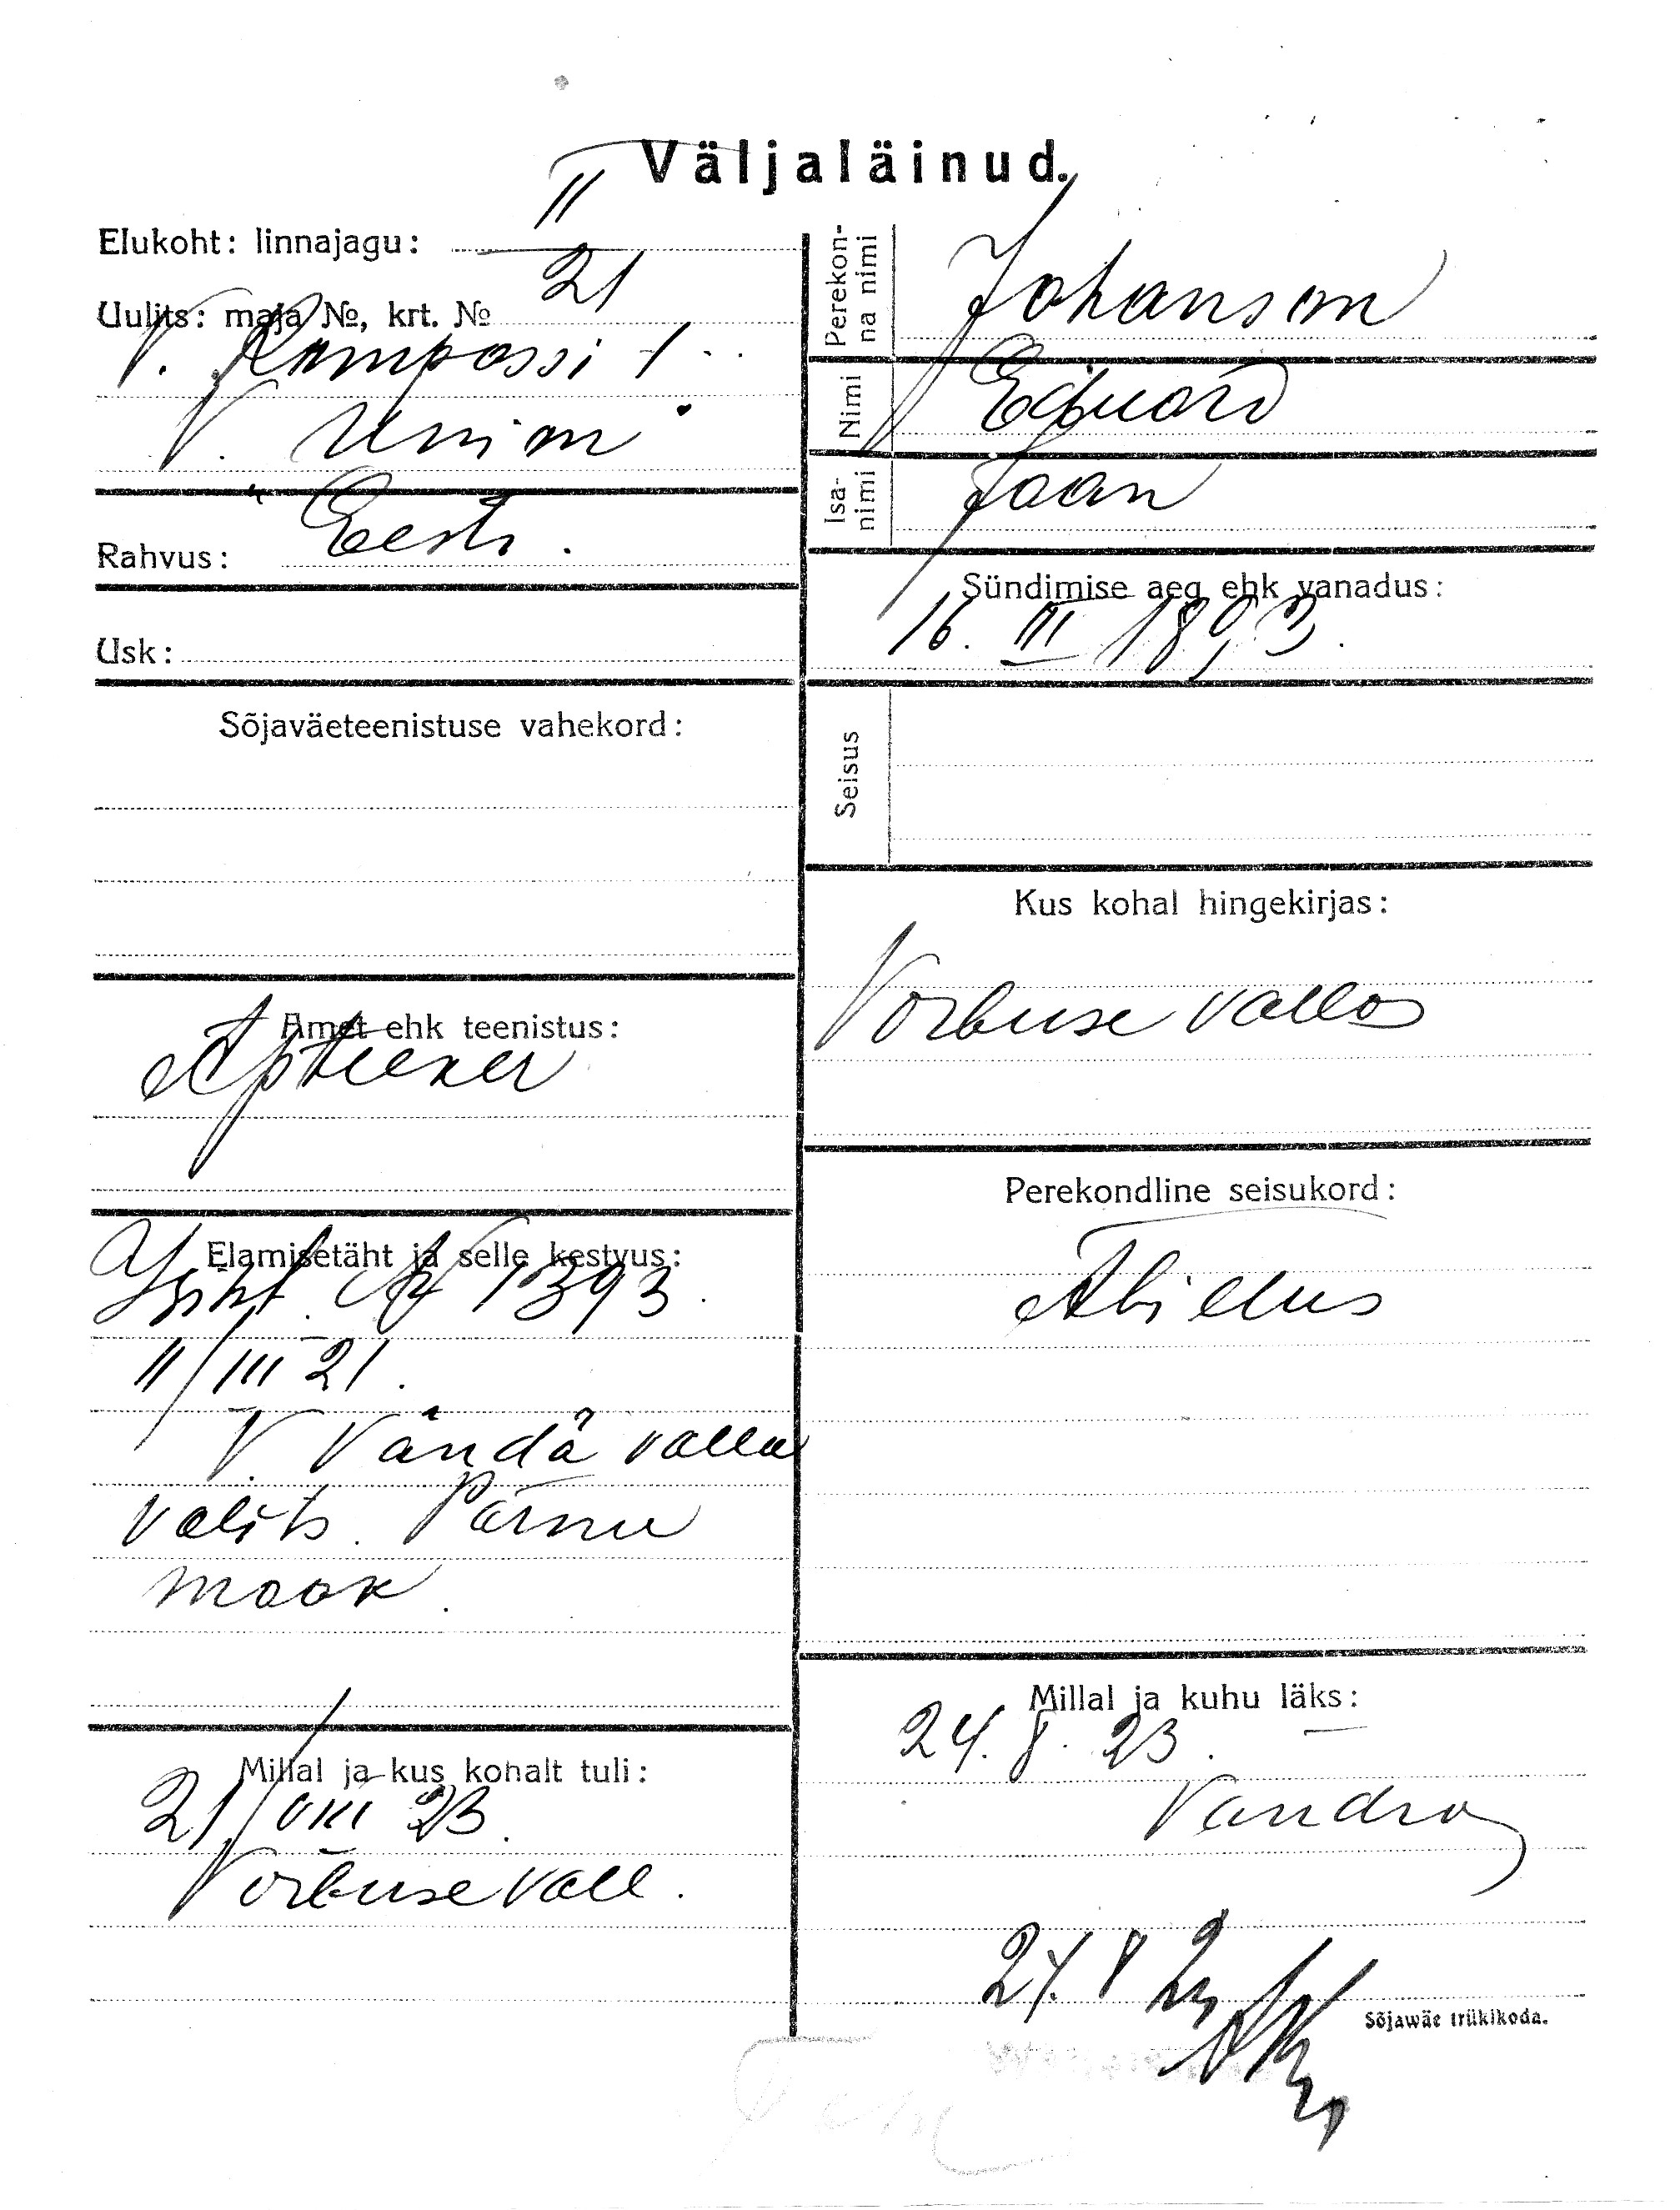 Väljaläinud.
Elukoht: linnajagu: II
Uulits: maja №, krt. № 21
V. Kompassi 1
V. Union"
Rahvus: Eesti.
Usk:
Sõjaväeteenistuse vahekord:
Amet ehk teenistus:
Apteeker
Elamisetäht ja selle kestvus:
№ 1393.
11/III 21.
V. Vändä valla
valits. Pärnu
maak.
Millal ja kus kohalt tuli:
21/VIII 23.
Vorbuse vall.
Perekonna nimi Johanson
Nimi Eduard
Isanimi Jaan
Sündimise aeg ehk vanadus:
16. III 1893.
Seisus
Kus kohal hingekirjas:
Vorbuse vallas
Perekondline seisukord:
Abielus
Millal ja kuhu läks:
24. 8. 23.
Vändra
24. 8 23
Sõjawäe trükikoda.